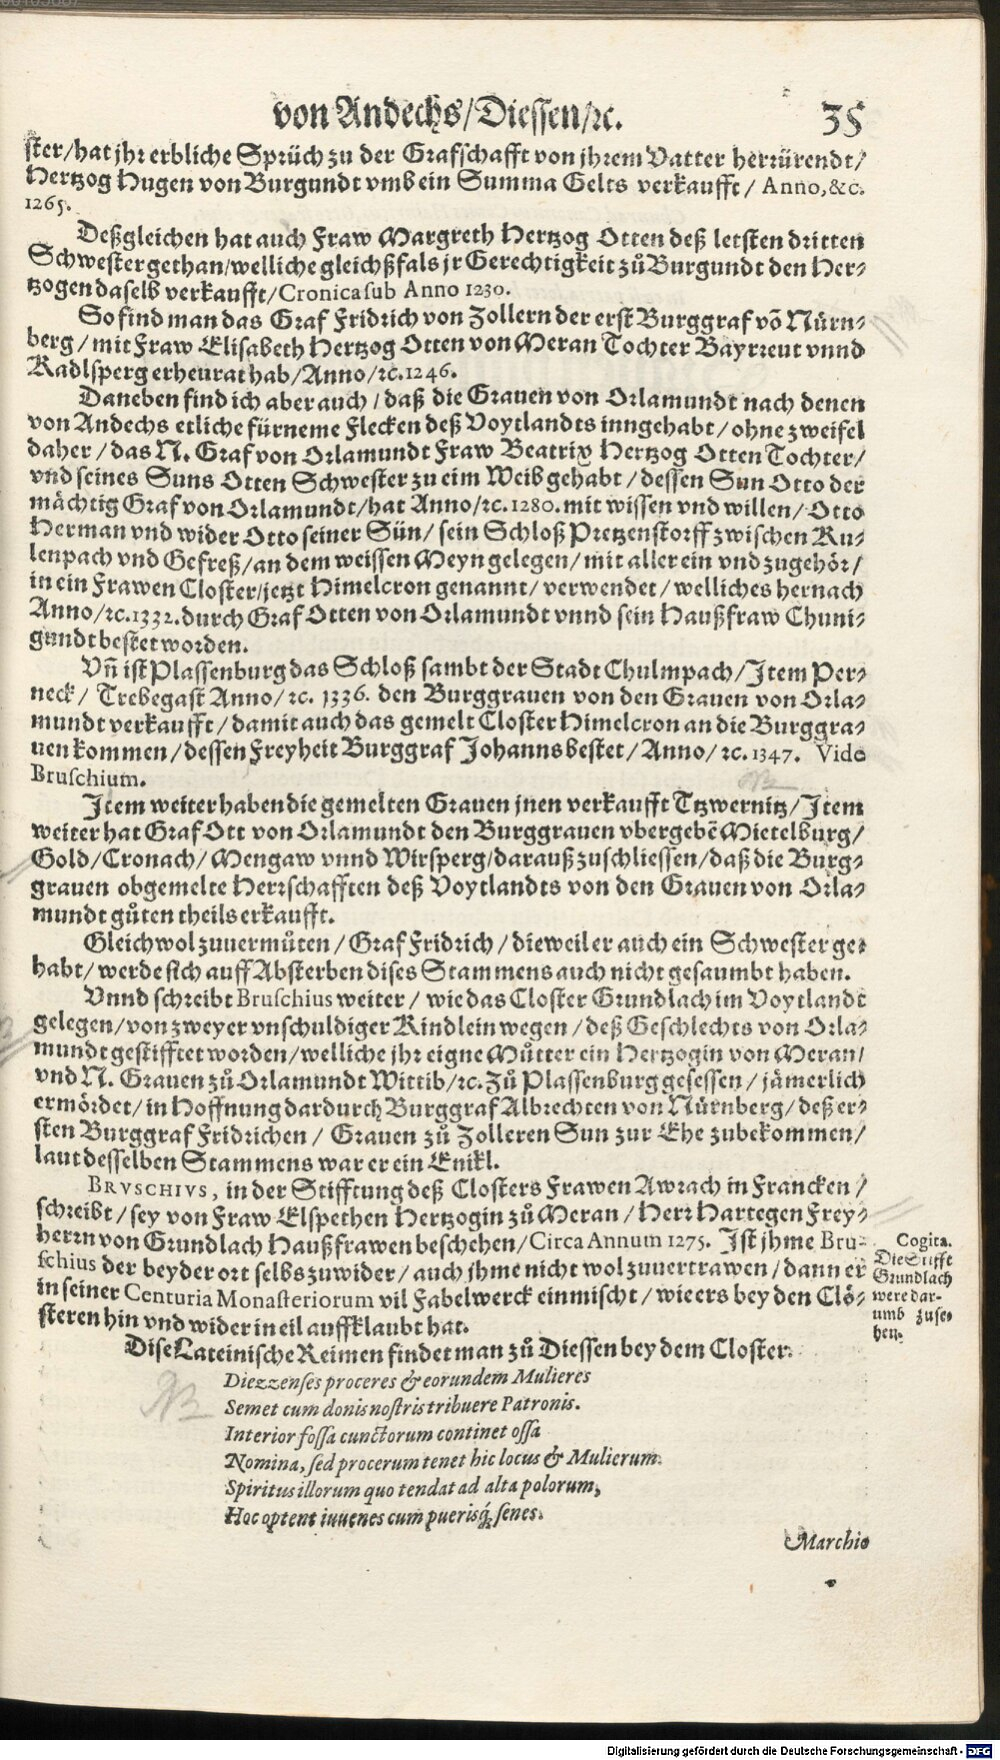 von Andechs/Diessen/ꝛc. 35
ster/hat jhr erbliche Sprüch zu der Grafschafft von jhrem Vatter herrürendt/
Hertzog Hugen von Burgundt vmb ein Summa Gelts verkaufft/ Anno, &c.
1265.
Deßgleichen hat auch Fraw Margreth Hertzog Otten deß letsten dritten
Schwester gethan/welliche gleichßfals jr Gerechtigkeit zů Burgundt den Her⸗
tzogen daselb verkaufft/Cronica sub Anno 1230.
So find man das Graf Fridrich von Zollern der erst Burggraf võ Nürn⸗
berg/mit Fraw Elisabeth Hertzog Otten von Meran Tochter Bayrreut vnnd
Kadlsperg erheurat hab/Anno/ꝛc.1246.
Daneben find ich aber auch/daß die Grauen von Orlamundt nach denen
von Andechs etliche fürneme Flecken deß Voytlandts inngehabt/ohne zweifel
daher/das N. Graf von Orlamundt Fraw Beatrix Hertzog Otten Tochter/
vnd seines Suns Otten Schwester zu eim Weib gehabt/dessen Sun Otto der
mächtig Graf von Orlamundt/hat Anno/ꝛc.1280.mit wissen vnd willen/Otto
Herman vnd wider Otto seiner Sün/sein Schloß Pretzenstorff zwischen Ku⸗
lenpach vnd Gefreß/an dem weissen Meyn gelegen/mit aller ein vnd zugehör/
in ein Frawen Closter/jetzt Himelcron genannt/verwendet/welliches hernach
Anno/ꝛc.1332.durch Graf Otten von Orlamundt vnnd sein Haußfraw Chuni⸗
gundt bestet worden.
Vñ ist Plassenburg das Schloß sambt der Stadt Chulmpach/Item Per⸗
neck/ Trebegast Anno/ꝛc. 1336. den Burggrauen von den Grauen von Orla⸗
mundt verkaufft/damit auch das gemelt Closter Himelcron an die Burggra⸗
uen kommen/dessen Freyheit Burggraf Johanns bestet/Anno/ꝛc.1347. Vide
Bruschium.
Item weiter haben die gemelten Grauen jnen verkaufft Tzwernitz/Item
weiter hat Graf Ott von Orlamundt den Burggrauen vbergebē Mietelburg/
Gold/Cronach/Mengaw vnnd Wirsperg/darauß zuschliessen/daß die Burg⸗
grauen obgemelte Herrschafften deß Voytlandts von den Grauen von Orla⸗
mundt gůten theils erkaufft.
Gleichwol zuuermůten/Graf Fridrich/dieweil er auch ein Schwester ge⸗
habt/werde sich auff Absterben dises Stammens auch nicht gesaumbt haben.
Vnnd schreibt Bruschius weiter/wie das Closter Grundlach im Voytlandt
gelegen/von zweyer vnschuldiger Kindlein wegen/deß Geschlechts von Orla⸗
mundt gestifftet worden/welliche jhr eigne Můtter ein Hertzogin von Meran/
vnd N. Grauen zů Orlamundt Wittib/ꝛc.Zů Plassenburg gesessen/jämerlich
ermördet/in Hoffnung dardurch Burggraf Albrechten von Nürnberg/deß er⸗
sten Burggraf Fridrichen/ Grauen zů Zolleren Sun zur Ehe zubekommen/
laut desselben Stammens war er ein Enikl.
BRVSCHIVS, in der Stifftung deß Closters Frawen Awrach in Francken/
schreibt/sey von Fraw Elspethen Hertzogin zů Meran/Herr Hartegen Frey⸗
herrn von Grundlach Haußfrawen beschehen/Circa Annum 1275. Ist jhme Bru-
schius der beyder ort selbs zuwider/auch jhme nicht wol zuuertrawen/dann er
in seiner Centuria Monasteriorum vil Fabelwerck einmischt/wie ers bey den Clö⸗
steren hin vnd wider in eil auffklaubt hat.
Cogita.
Die Stifft
Grundlach
were dar-
umb zuse⸗
hen.
Dise Lateinische Reimen findet man zů Diessen bey dem Closter.
NB
Diezzenses proceres & eorundem Mulieres
Semet cum donis nostris tribuere Patronis.
Interior fossa cunctorum continet ossa
Nomina, sed procerum tenet hic locus & Mulierum.
Spiritus illorum quo tendat ad alta polorum,
Hoc optent iuuenes cum puerisq́ senes.
Marchio
Digitalisierung gefördert durch die Deutsche Forschungsgemeinschaft - DFG